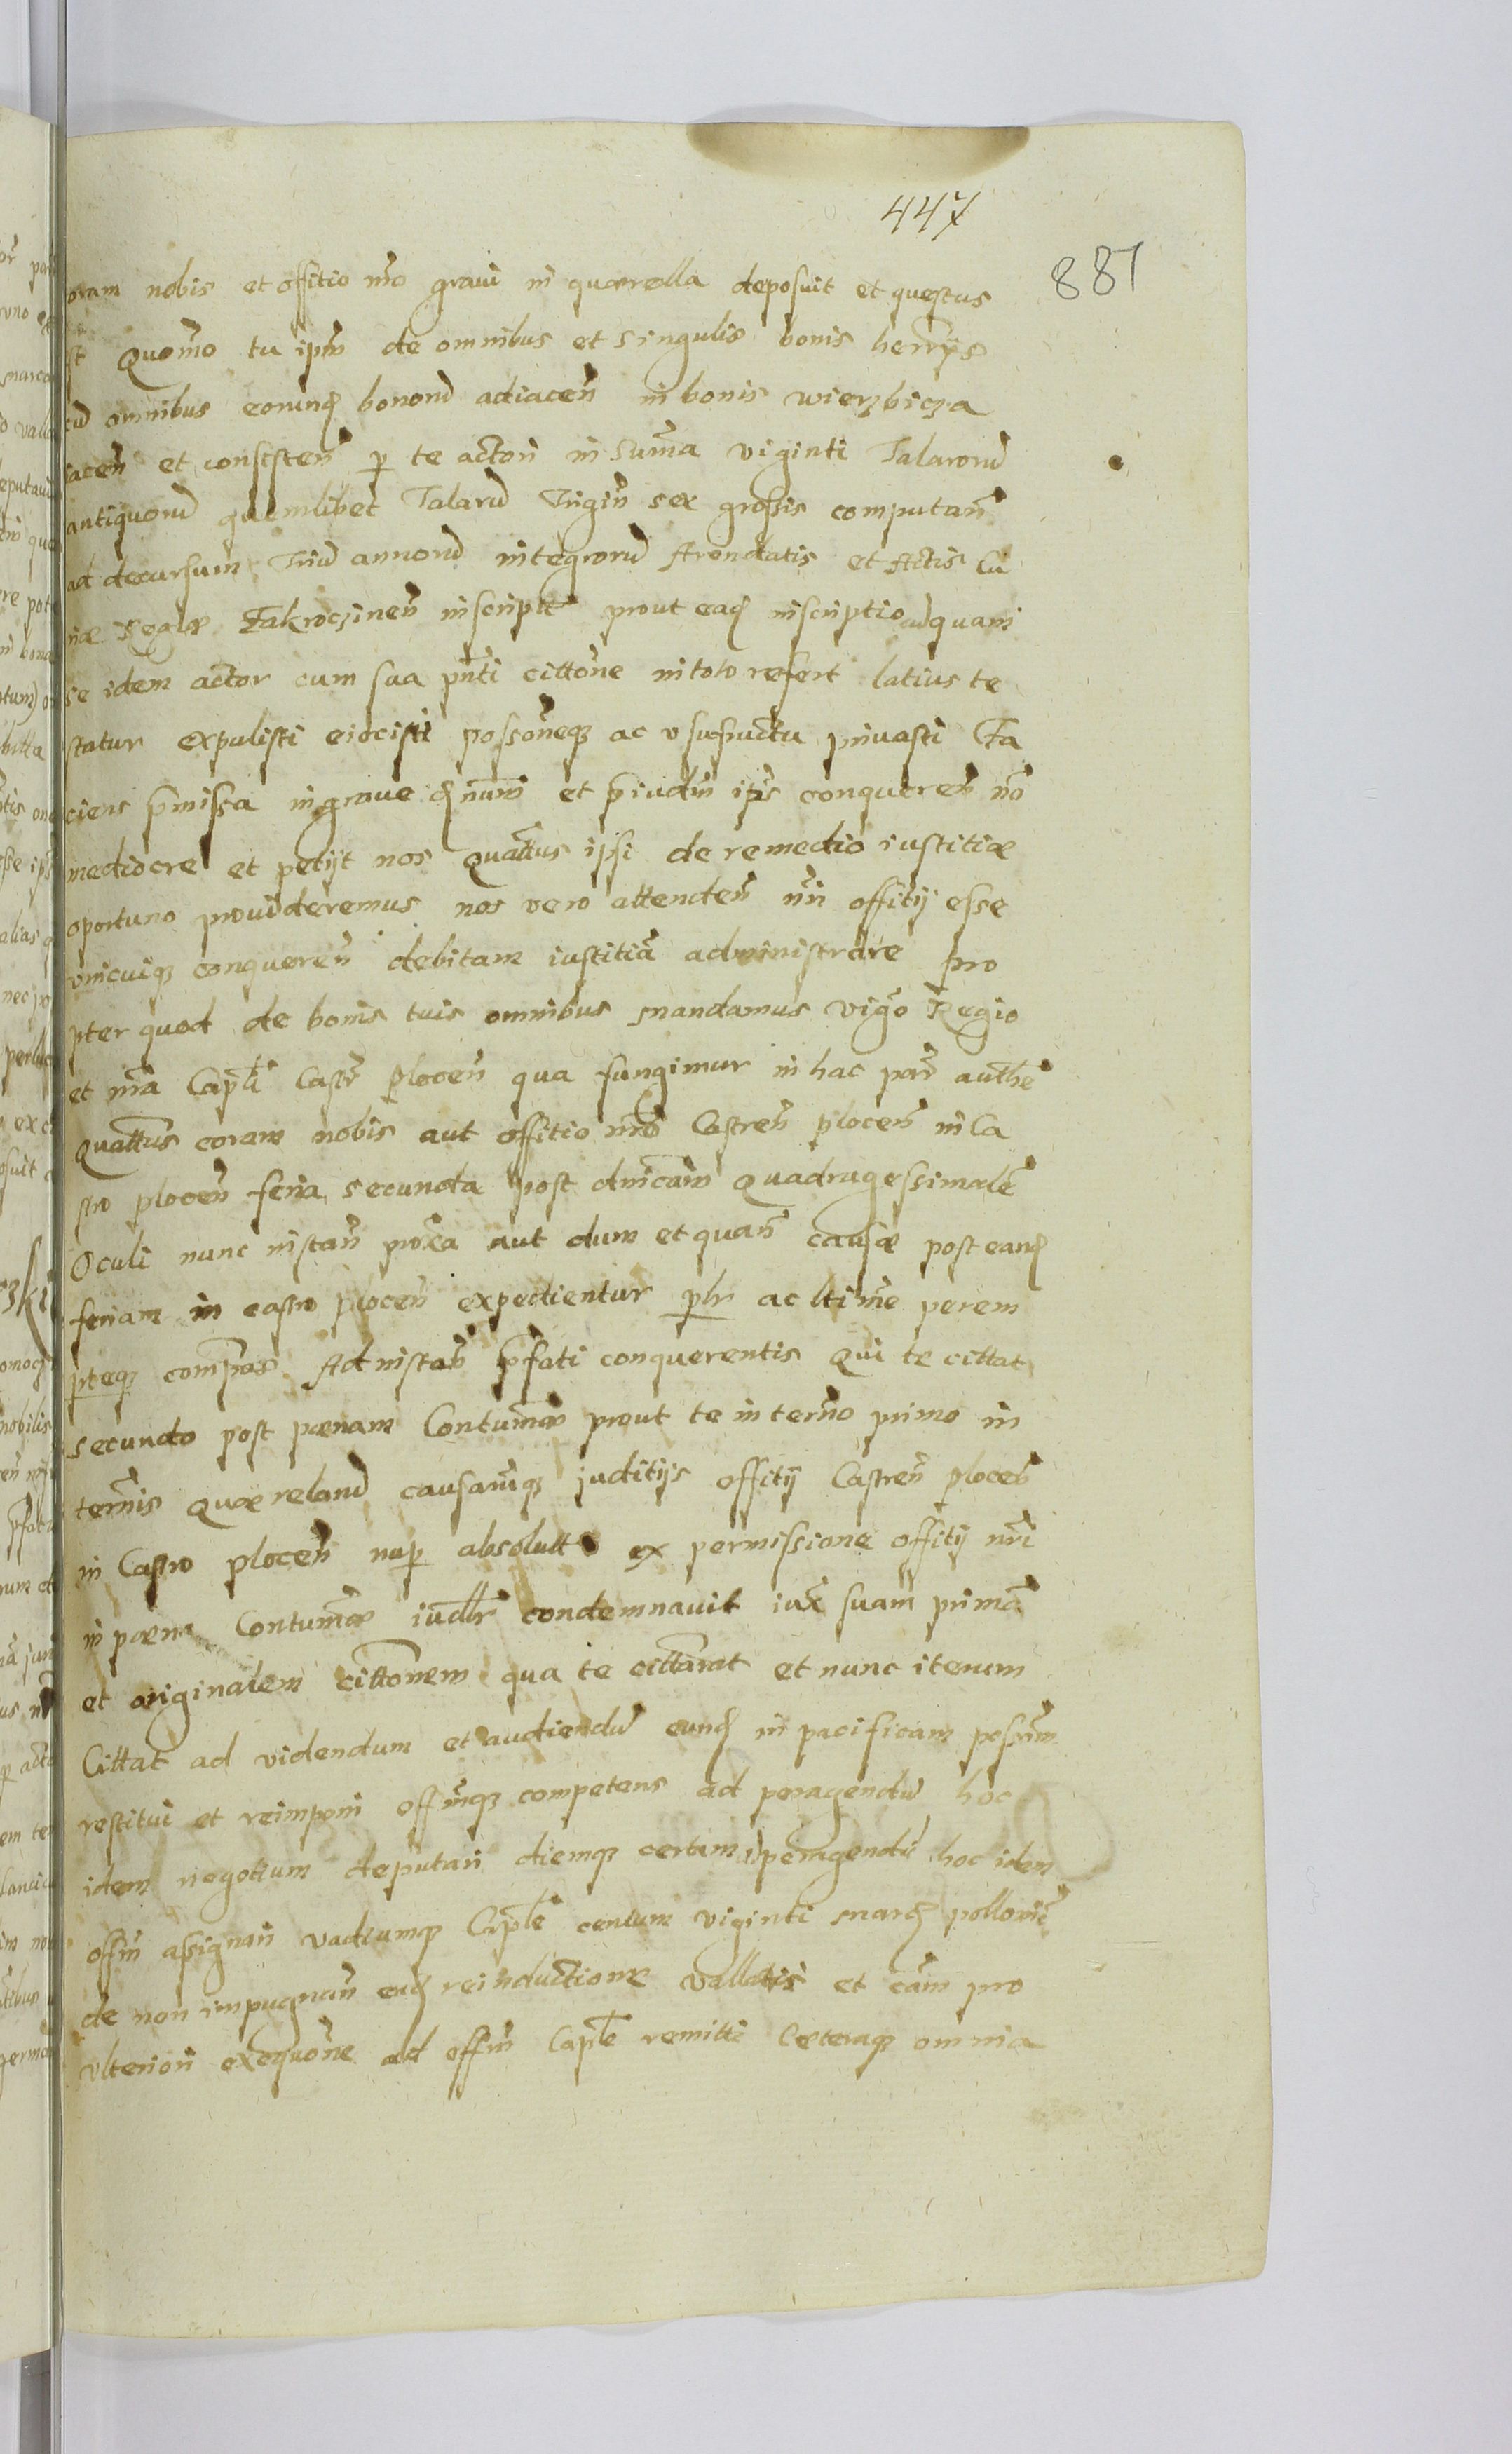 447
881
oram nobis et offitio nro gravi in quærella deposuit et questus
st Quomo tu ipm de omnibus et singulis bonis herrys
cu omnibus eorunq bonoru adiacen in bonis wierzbicza
iacen et consisten p te actori in Suma viginti Talaroru
antiquoru quemlibet Talaru Trigin sex grossis computan
ad decursum Triu annoru integroru Arendatis et Actis Cu
riæ Regalis Zakroczinen inscriptt prout eaq inscriptio ad quam
se idem actor cum sua pnti cittone in toto refert latius te
statur expulisti eiecisti possoneqz ac usufructu privasti Fa
ciens pmissa in grave dnum et piudm ips conqueren no
mediocre et petijt nos Quattus ipsi de remedio iustitiæ
oportuno provideremus nos vero attenden nri offitij esse
unicuiqz conqueren debitam iustitia administrare pro
pter quod de bonis tuis omnibus mandamus vigo Regio
et nra Capli Castr plocen qua fungimur in hac par authe
Quattus coram nobis aut offitio nro Castren plocen in Ca
stro plocen feria secunda post dnicam Quadragessimale
Oculi nunc instan proxa aut dum et quan causæ post eanq
feriam in castro plocen expedientur plr ac ltime perem
pteqz compas Ad instan pfati conquerentis Qui te cittat
secundo post pœnam Contumæ prout te in terno primo in
ternis Quærelaru causarumqz juditijs offitij Castren plocen
in Castro plocen nup absolutt ex permissione offitij nri
in pœna Contumæ iudlr condemnavit iux suam prima
et originalem cittonem qua te cittarat et nunc iterum
Cittat ad videndum et audiendu eunq in pacificam possnem
restitui et reimponi offmqz competens ad peragendu hoc
idem negotium deputari diemqz certam peragendu hoc idem
offm assignari vadiumqz Caple centum viginti marq polloni
de non impugnan eaq reinductione vallatis et cam pro
ulteriori exequone ad offm Caple remitti Cæteraqz omnia